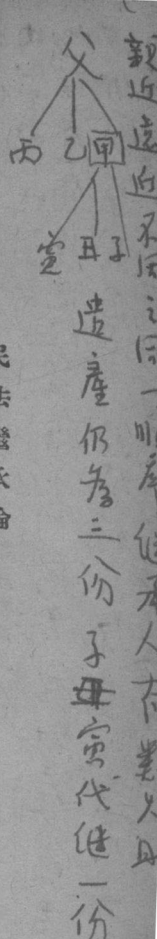 親近遠近不同之同一順序繼承人有數人且
父
丙 乙 甲
寅 丑 子
遺產仍為三份 子丑寅代繼一份
民法繼承論